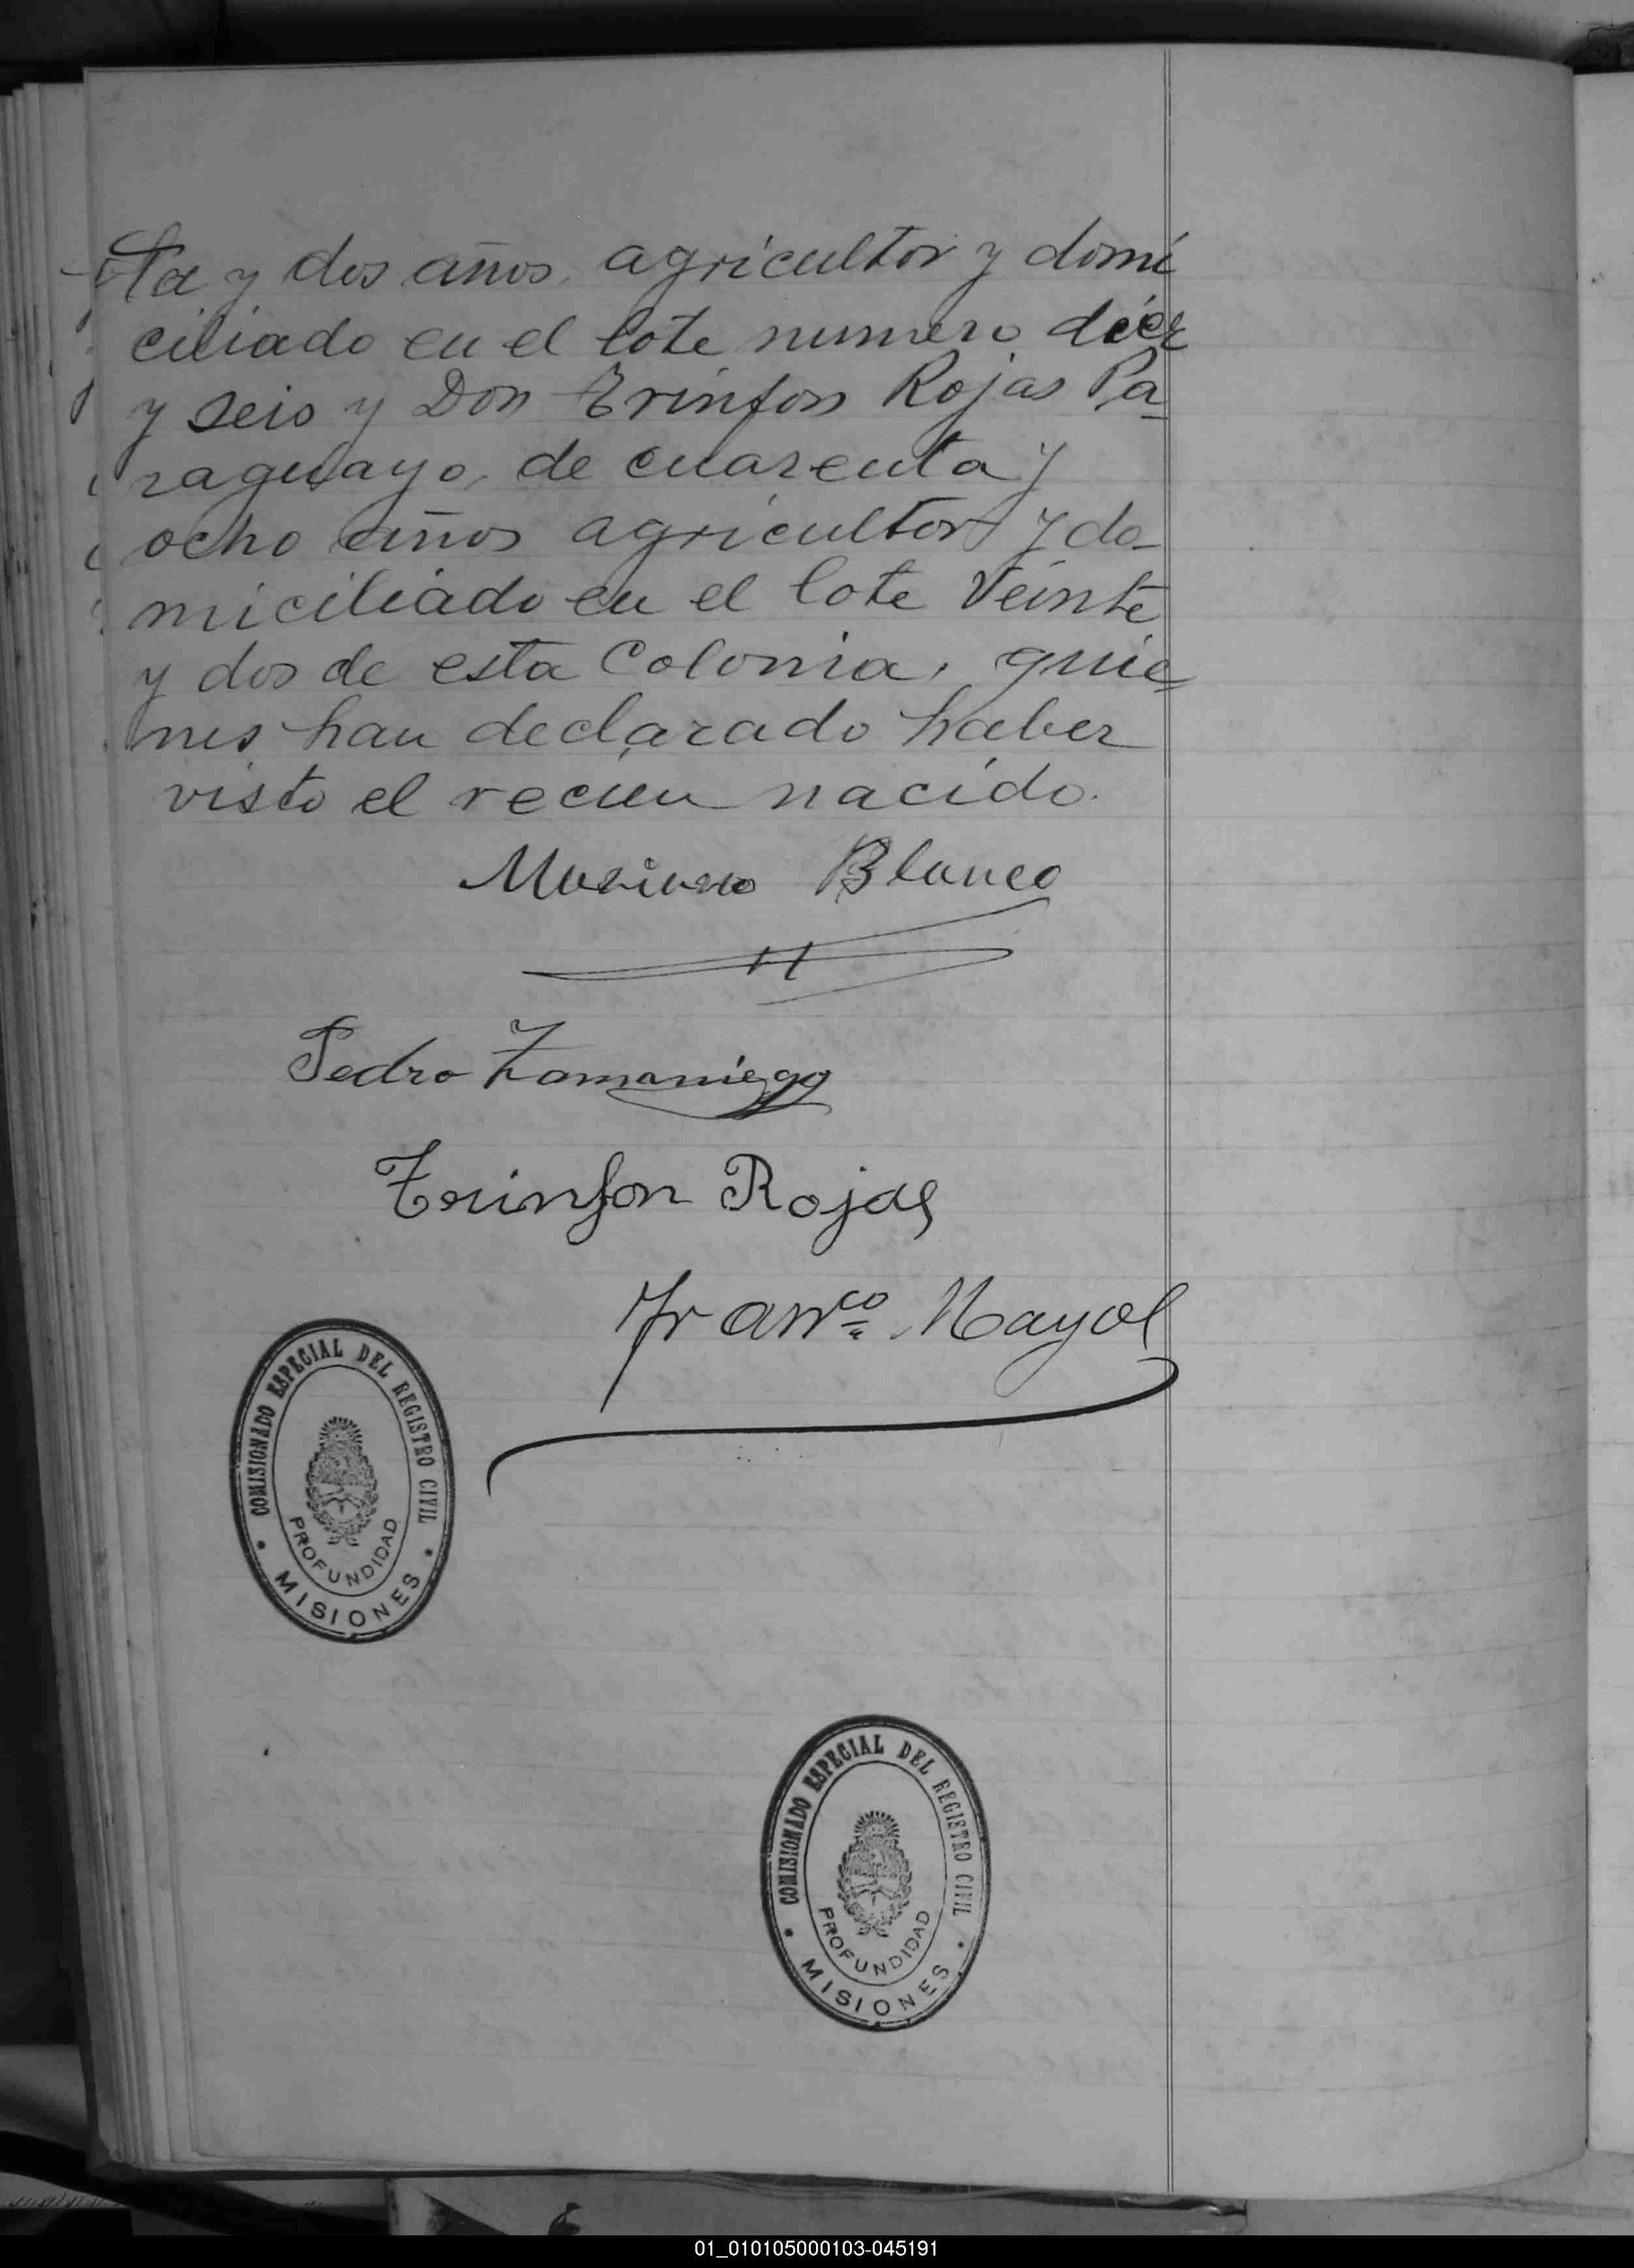 ta y dos años, agricultor y domi
ciliado en el lote numero diez
y seis y Don Trinfon Rojas Pa-
raguayo, de cuarenta y
ocho años agricultor y do-
miciliado en el lote veinte
y dos de esta Colonia, quie-
nes han declarado haber
visto el recien nacido.
Mariano Blanco
Pedro Zamaniego
Trinfon Rojas
Franco Mayol
COMISIONADO ESPECIAL DEL REGISTRO CIVIL
PROFUNDIDAD
* MISIONES *
COMISIONADO ESPECIAL DEL REGISTRO CIVIL
PROFUNDIDAD
* MISIONES *
01_010105000103-045191